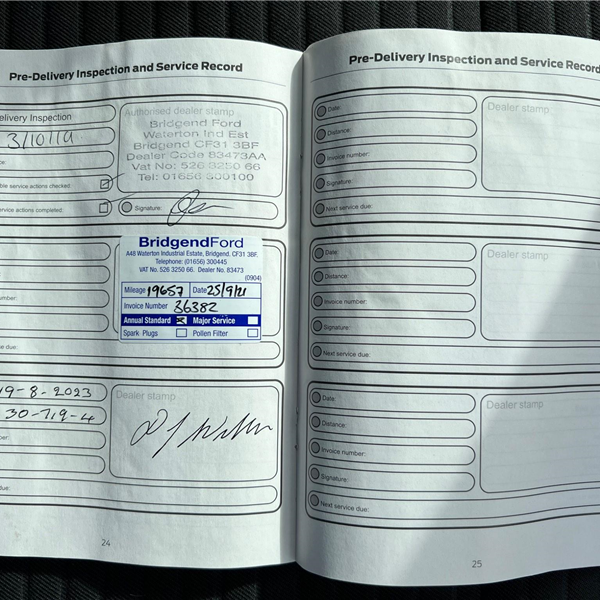 Pre-Delivery Inspection and Service Record
elivery Inspection
3/10/19
ble service actions checked:
rvice actions completed:
Authorised dealer stamp
Bridgend Ford
Waterton Ind Est
Bridgend CF31 3BF
Dealer Code 83473AA
Vat No: 526 3250 66
Tel: 01656 300100
Signature:
BridgendFord
A48 Waterton Industrial Estate, Bridgend. CF31 3BF.
Telephone: (01656) 300445
VAT No. 526 3250 66. Dealer No. 83473
(0904)
Mileage 19657 Date 25/9/21
Invoice Number 36382
Annual Standard Major Service
Spark Plugs Pollen Filter
umber:
e due:
19-8-2023
30-719-4
ber:
due:
Dealer stamp
24
Pre-Delivery Inspection and Service Record
Date:
Distance:
Invoice number:
Signature:
Next service due:
Dealer stamp:
Date:
Distance:
Invoice number:
Signature:
Next service due:
Dealer stamp
Date:
Distance:
Invoice number:
Signature:
Next service due:
Dealer stamp
25